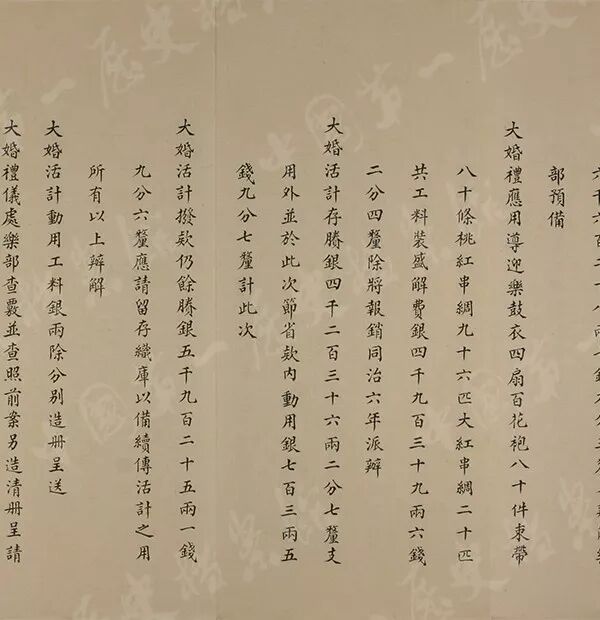 部預備
大婚禮應用導迎樂鼓衣四扇百花袍八十件束帶
八十條桃紅串綢九十六匹大紅串綢二十匹
共工料裝盛解費銀四千九百三十九兩六錢
二分四釐除將報銷同治六年派辦
大婚活計存賸銀四千二百三十六兩二分七釐支
用外並於此次節省款內動用銀七百三兩五
錢九分七釐計此次
大婚活計撥款仍餘賸銀五千九百二十五兩一錢
九分六釐應請留存織庫以備續傳活計之用
所有以上辦解
大婚活計動用工料銀兩除分別造册呈送
大婚禮儀處樂部查覈並查照前案另造清册呈請